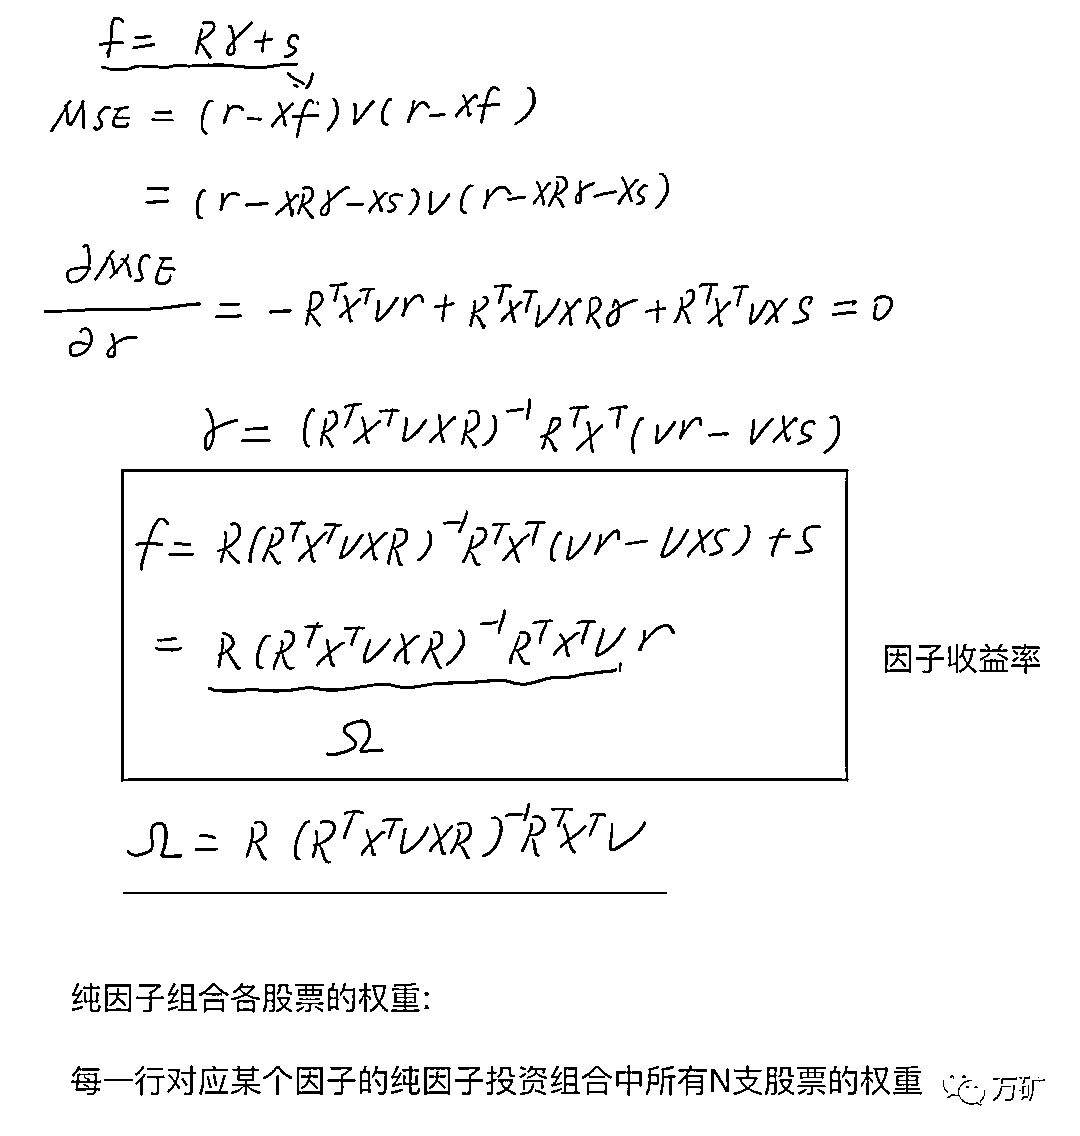 f = Rγ + s
MSE = (r - Xf) V (r - Xf)
= (r - XRγ - Xs) V (r - XRγ - Xs)
∂MSE / ∂γ = -RᵀXᵀVr + RᵀXᵀVXRγ + RᵀXᵀVXS = 0
γ = (RᵀXᵀVXR)⁻¹ RᵀXᵀ(Vr - VXs)
f = R(RᵀXᵀVXR)⁻¹RᵀXᵀ(Vr - VXS) + S
= R(RᵀXᵀVXR)⁻¹RᵀXᵀV r
因子收益率
Ω
Ω = R (RᵀXᵀVXR)⁻¹RᵀXᵀV
纯因子组合各股票的权重:
每一行对应某个因子的纯因子投资组合中所有N支股票的权重
万矿